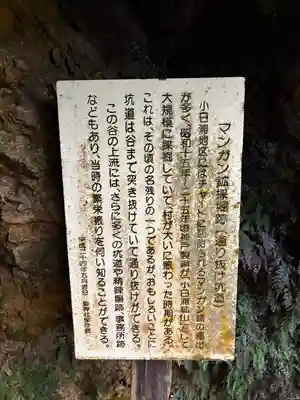 マンガン鉱採掘跡(通り抜け坑道)
小日浦地区にはチャートに胚胎されるマンガン鉱の産出
が多く、昭和十五年~二十五年頃若戸製鋼が小日浦鉱山として
大規模に採掘していて、村が大いに賑わった時期がある。
これは、その頃の名残りの一つであるが、おもしろいことに
坑道は谷まで突き抜けていて通り抜けができる。
この谷の上流には、さらに多くの坑道や精錬場跡、事務所跡
などもあり、当時の繁栄振りを伺い知ることができる。
平成二十四年五月吉日